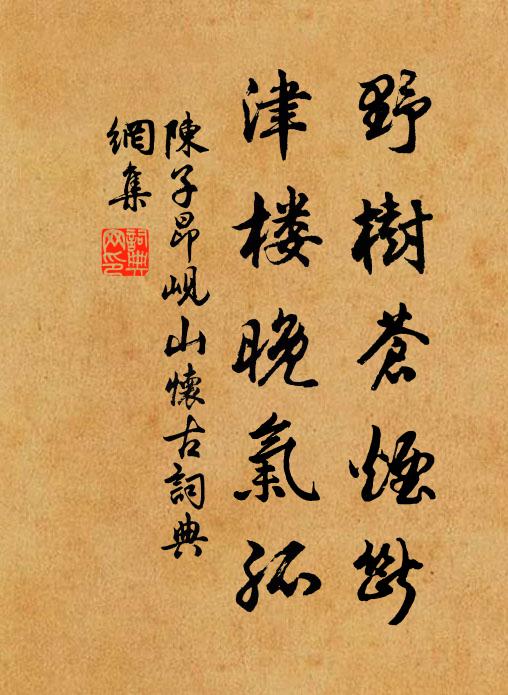 野樹蒼煙斷
津楼晚氣孤
陳子昂峴山懷古詞典
網集
詞典
網印